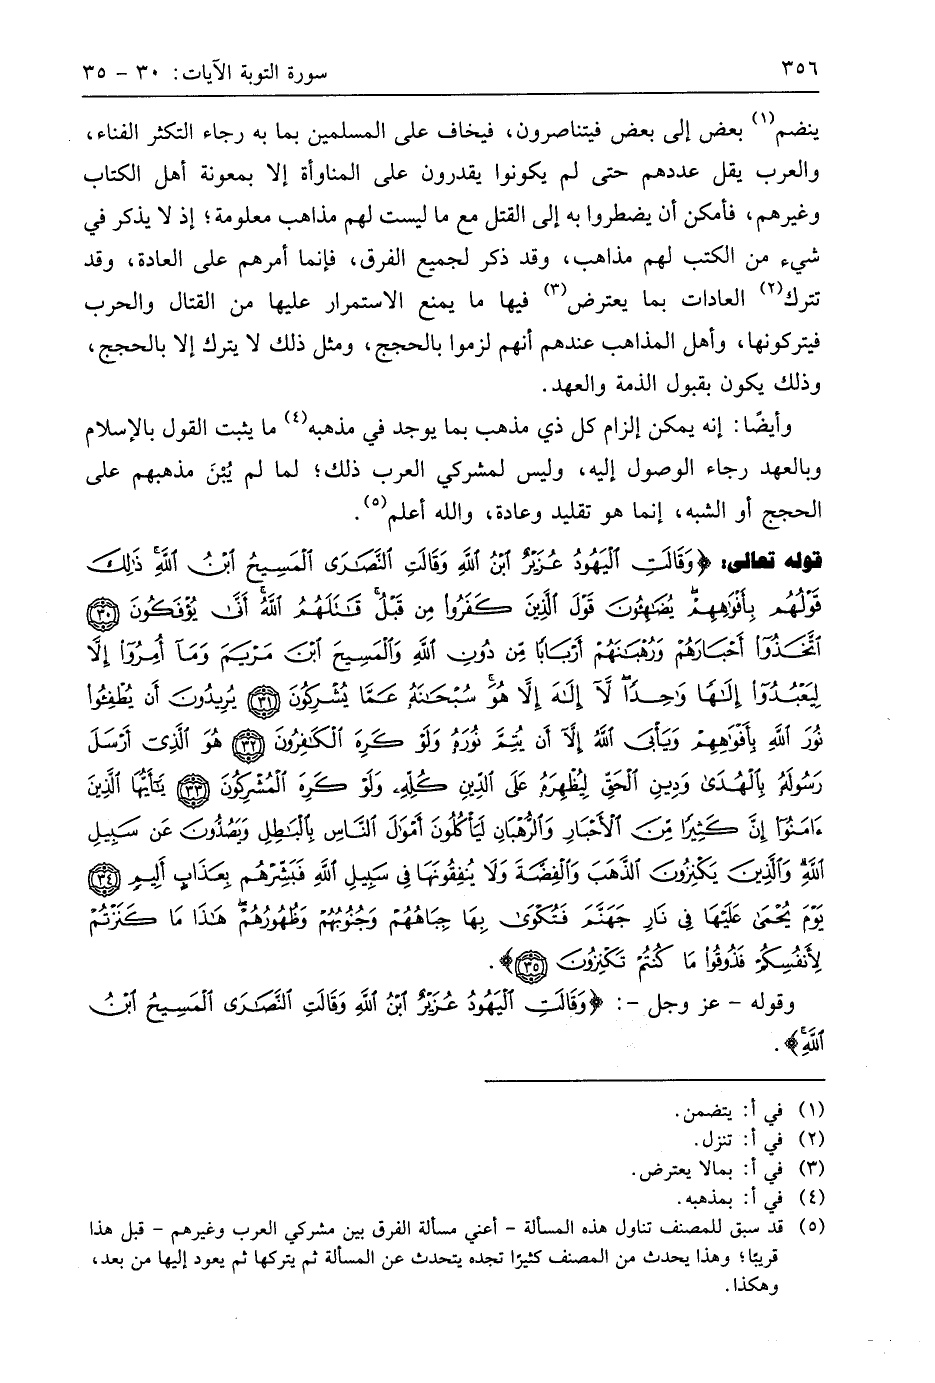 ٣٥٦
سورة التوبة الآيات: ٣٠ - ٣٥
ينضم(١) بعض إلى بعض فيتناصرون، فيخاف على المسلمين بما به رجاء التكثر الفناء،
والعرب يقل عددهم حتى لم يكونوا يقدرون على المناوأة إلا بمعونة أهل الكتاب
وغيرهم، فأمكن أن يضطروا به إلى القتل مع ما ليست لهم مذاهب معلومة؛ إذ لا يذكر في
شيء من الكتب لهم مذاهب، وقد ذكر لجميع الفرق، فإنما أمرهم على العادة، وقد
تترك(٢) العادات بما يعترض(٣) فيها ما يمنع الاستمرار عليها من القتال والحرب
فيتركونها، وأهل المذاهب عندهم أنهم لزموا بالحجج، ومثل ذلك لا يترك إلا بالحجج،
وذلك يكون بقبول الذمة والعهد.
وأيضًا: إنه يمكن إلزام كل ذي مذهب بما يوجد في مذهبه(٤) ما يثبت القول بالإسلام
وبالعهد رجاء الوصول إليه، وليس لمشركي العرب ذلك؛ لما لم يُبْنَ مذهبهم على
الحجج أو الشبه، إنما هو تقليد وعادة، والله أعلم(٥).
قوله تعالى: ﴿وَقَالَتِ ٱلْيَهُودُ عُزَيْرٌ ٱبْنُ ٱللَّهِ وَقَالَتِ ٱلنَّصَـٰرَى ٱلْمَسِيحُ ٱبْنُ ٱللَّهِۖ ذَٰلِكَ
قَوْلُهُم بِأَفْوَٰهِهِمْۖ يُضَـٰهِـُٔونَ قَوْلَ ٱلَّذِينَ كَفَرُوا۟ مِن قَبْلُۚ قَـٰتَلَهُمُ ٱللَّهُۚ أَنَّىٰ يُؤْفَكُونَ ﴿٣٠﴾
ٱتَّخَذُوٓا۟ أَحْبَارَهُمْ وَرُهْبَـٰنَهُمْ أَرْبَابًا مِّن دُونِ ٱللَّهِ وَٱلْمَسِيحَ ٱبْنَ مَرْيَمَ وَمَآ أُمِرُوٓا۟ إِلَّا
لِيَعْبُدُوٓا۟ إِلَـٰهًا وَٰحِدًاۖ لَّآ إِلَـٰهَ إِلَّا هُوَۚ سُبْحَـٰنَهُۥ عَمَّا يُشْرِكُونَ ﴿٣١﴾ يُرِيدُونَ أَن يُطْفِـُٔوا۟
نُورَ ٱللَّهِ بِأَفْوَٰهِهِمْ وَيَأْبَى ٱللَّهُ إِلَّآ أَن يُتِمَّ نُورَهُۥ وَلَوْ كَرِهَ ٱلْكَـٰفِرُونَ ﴿٣٢﴾ هُوَ ٱلَّذِىٓ أَرْسَلَ
رَسُولَهُۥ بِٱلْهُدَىٰ وَدِينِ ٱلْحَقِّ لِيُظْهِرَهُۥ عَلَى ٱلدِّينِ كُلِّهِۦ وَلَوْ كَرِهَ ٱلْمُشْرِكُونَ ﴿٣٣﴾ يَـٰٓأَيُّهَا ٱلَّذِينَ
ءَامَنُوٓا۟ إِنَّ كَثِيرًا مِّنَ ٱلْأَحْبَارِ وَٱلرُّهْبَانِ لَيَأْكُلُونَ أَمْوَٰلَ ٱلنَّاسِ بِٱلْبَـٰطِلِ وَيَصُدُّونَ عَن سَبِيلِ
ٱللَّهِۗ وَٱلَّذِينَ يَكْنِزُونَ ٱلذَّهَبَ وَٱلْفِضَّةَ وَلَا يُنفِقُونَهَا فِى سَبِيلِ ٱللَّهِ فَبَشِّرْهُم بِعَذَابٍ أَلِيمٍ ﴿٣٤﴾
يَوْمَ يُحْمَىٰ عَلَيْهَا فِى نَارِ جَهَنَّمَ فَتُكْوَىٰ بِهَا جِبَاهُهُمْ وَجُنُوبُهُمْ وَظُهُورُهُمْۖ هَـٰذَا مَا كَنَزْتُمْ
لِأَنفُسِكُمْ فَذُوقُوا۟ مَا كُنتُمْ تَكْنِزُونَ ﴿٣٥﴾﴾.
وقوله - عز وجل -: ﴿وَقَالَتِ ٱلْيَهُودُ عُزَيْرٌ ٱبْنُ ٱللَّهِ وَقَالَتِ ٱلنَّصَـٰرَى ٱلْمَسِيحُ ٱبْنُ
ٱللَّهِۖ﴾.
(١) في أ: يتضمن.
(٢) في أ: تنزل.
(٣) في أ: بمالا يعترض.
(٤) في أ: بمذهبه.
(٥) قد سبق للمصنف تناول هذه المسألة - أعني مسألة الفرق بين مشركي العرب وغيرهم - قبل هذا
قريبًا؛ وهذا يحدث من المصنف كثيرًا تجده يتحدث عن المسألة ثم يتركها ثم يعود إليها من بعد،
وهكذا.